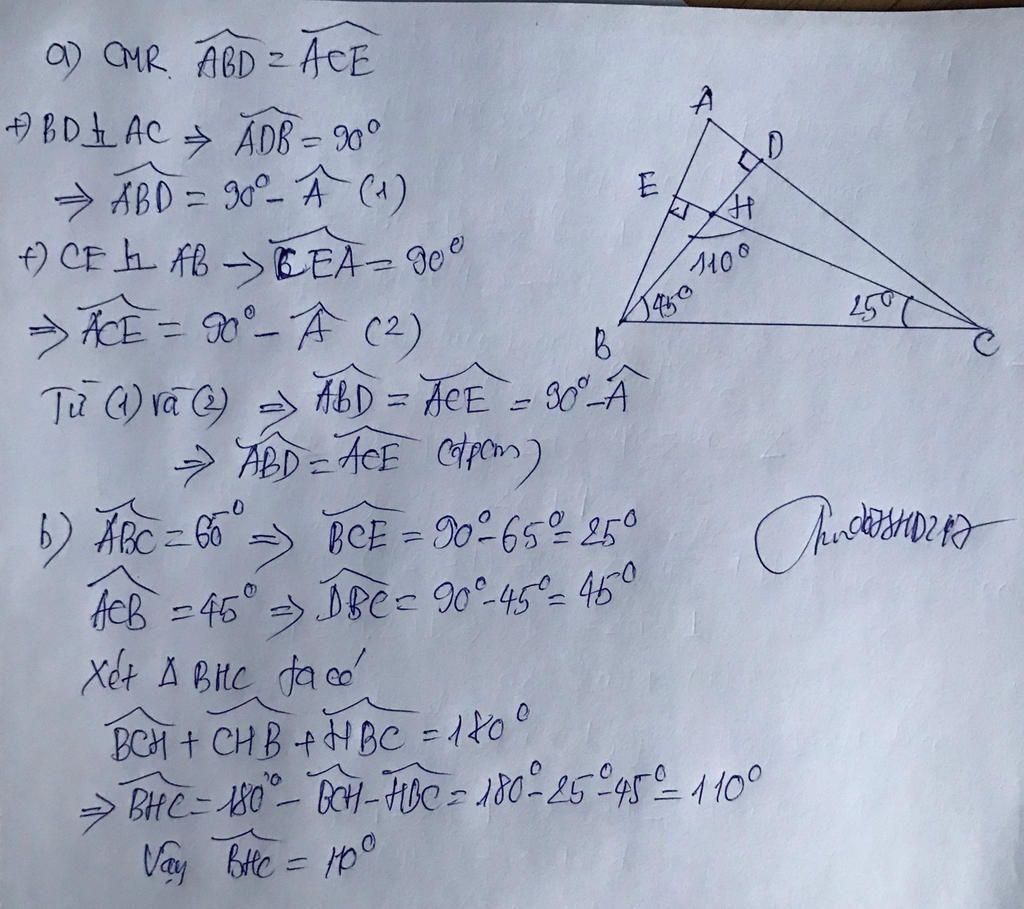 a) CMR. ABD̂ = ACÊ
+) BD ⊥ AC ⇒ ADB̂ = 90°
⇒ ABD̂ = 90° - Â (1)
+) CE ⊥ AB → CEÂ = 90°
⇒ ACÊ = 90° - Â (2)
Từ (1) và (2) ⇒ ABD̂ = ACÊ = 90° - Â
⇒ ABD̂ = ACÊ (đpcm)
b) ABĈ = 65° ⇒ BCÊ = 90° - 65° = 25°
ACB̂ = 45° ⇒ DBĈ = 90° - 45° = 45°
Xét Δ BHC ta có
BCĤ + CHB̂ + HBĈ = 180°
⇒ BHĈ = 180° - BCĤ - HBĈ = 180° - 25° - 45° = 110°
Vậy BHĈ = 110°
A
D
E
H
110°
45°
25°
B
C